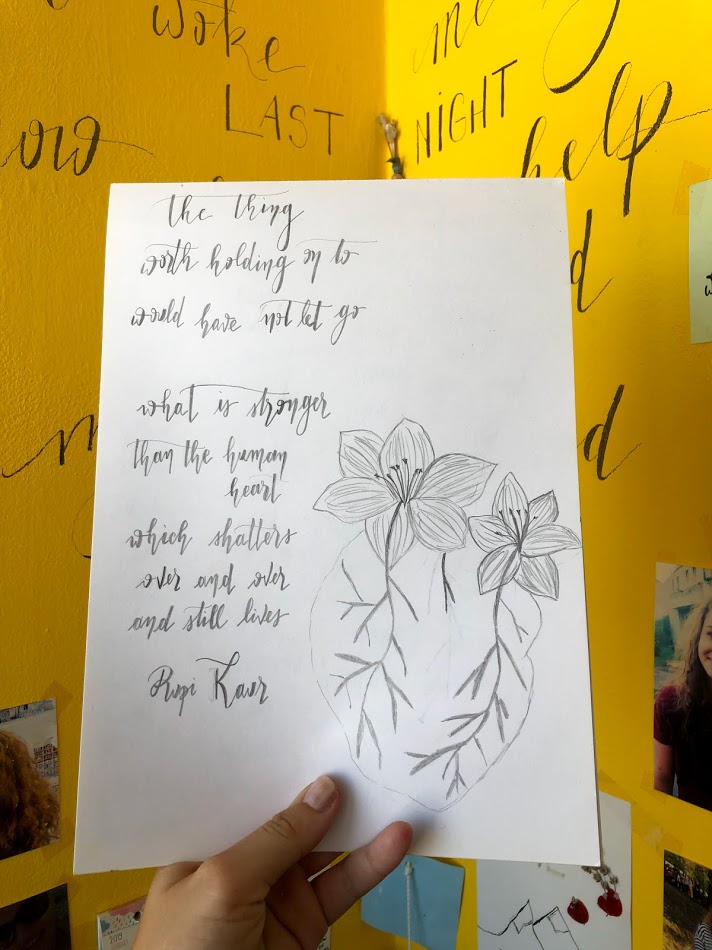 woke
LAST NIGHT
help
the thing
worth holding on to
would have not let go
what is stronger
than the human
heart
which shatters
over and over
and still lives
Rupi Kaur
2019